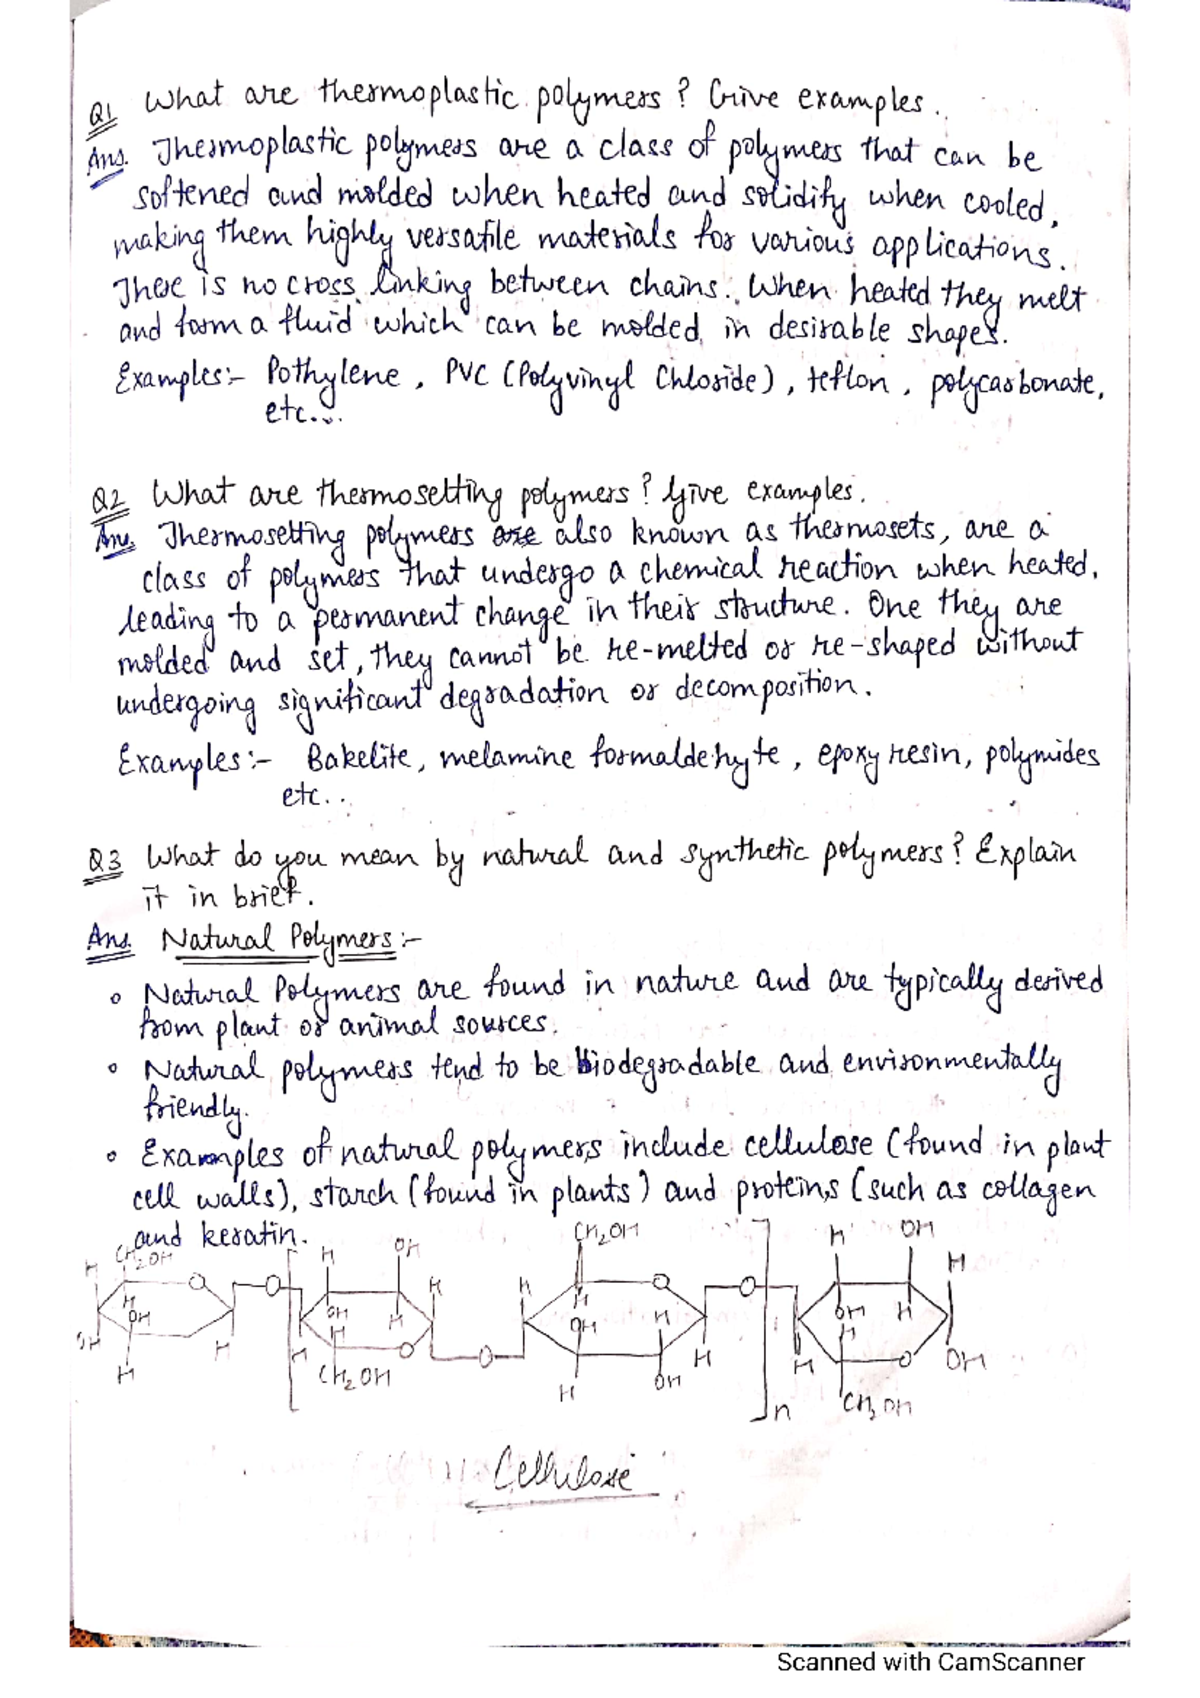 Q1 What are thermoplastic polymers? Give examples.
Ans. Thermoplastic polymers are a class of polymers that can be
softened and molded when heated and solidify when cooled,
making them highly versatile materials for various applications.
There is no cross linking between chains. When heated they melt
and form a fluid which can be molded in desirable shapes.
Examples:- Pothylene, PVC (Polyvinyl Chloride), teflon, polycarbonate,
etc...
Q2 What are thermosetting polymers? Give examples.
Ans. Thermosetting polymers are also known as thermosets, are a
class of polymers that undergo a chemical reaction when heated,
leading to a permanent change in their structure. One they are
molded and set, they cannot be re-melted or re-shaped without
undergoing significant degradation or decomposition.
Examples:- Bakelite, melamine formaldehyte, epoxy resin, polymides
etc..
Q3 What do you mean by natural and synthetic polymers? Explain
it in brief.
Ans. Natural Polymers:-
• Natural Polymers are found in nature and are typically derived
from plant or animal sources.
• Natural polymers tend to be biodegradable and environmentally
friendly.
• Examples of natural polymers include cellulose (found in plant
cell walls), starch (found in plants) and proteins (such as collagen
and keratin.
CH2OH H OH CH2OH H OH
H O O H H O O H
H OH OH H H H OH H OH H H
OH H H H CH2OH O O H OH H H O OH
H n CH2OH
Cellulose
Scanned with CamScanner